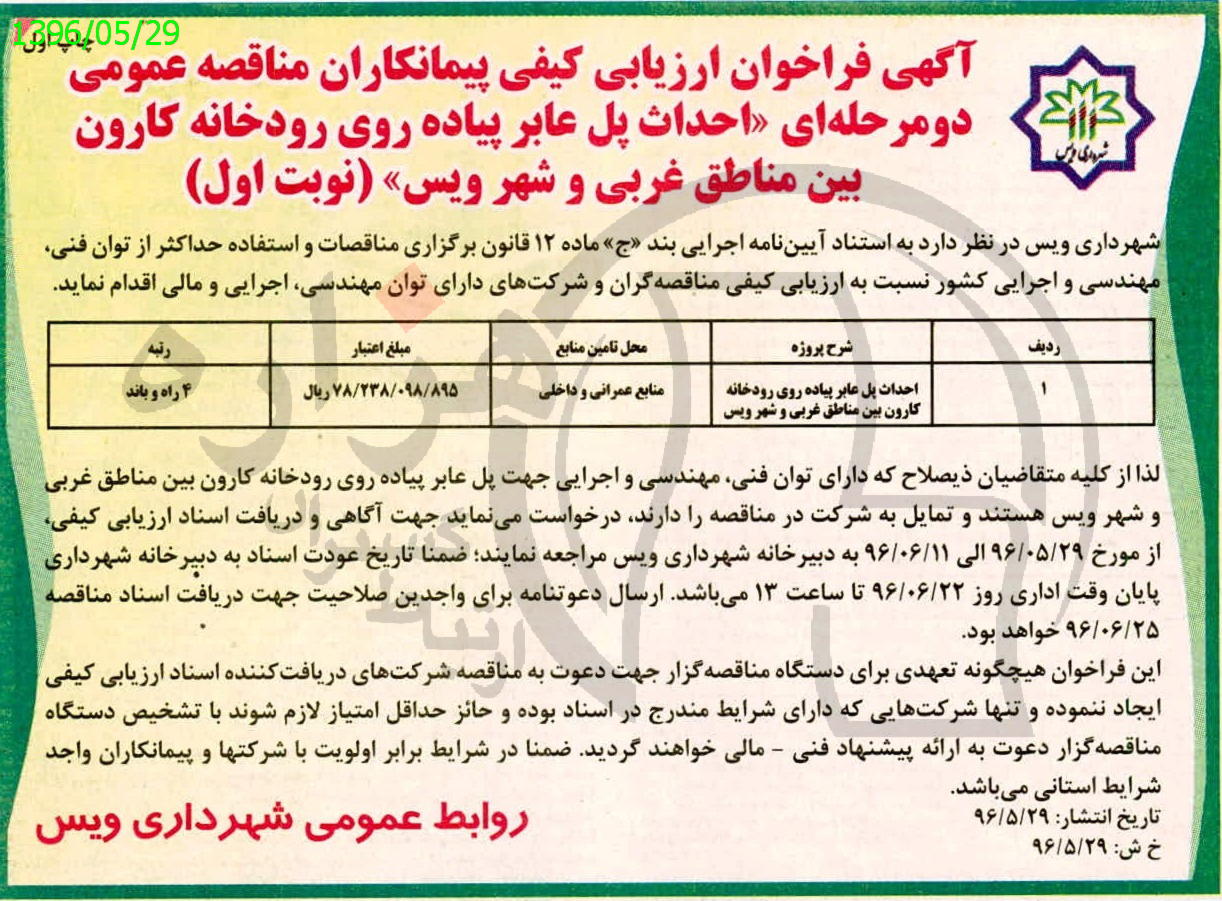 1396/05/29
چاپ اول
آگهی فراخوان ارزیابی کیفی پیمانکاران مناقصه عمومی
دومرحله‌ای «احداث پل عابر پیاده روی رودخانه کارون
بین مناطق غربی و شهر ویس» (نوبت اول)
شهرداری ویس
شهرداری ویس در نظر دارد به استناد آیین‌نامه اجرایی بند «ج» ماده ۱۲ قانون برگزاری مناقصات و استفاده حداکثر از توان فنی،
مهندسی و اجرایی کشور نسبت به ارزیابی کیفی مناقصه‌گران و شرکت‌های دارای توان مهندسی، اجرایی و مالی اقدام نماید.
ردیف شرح پروژه محل تامین منابع مبلغ اعتبار رتبه
۱ احداث پل عابر پیاده روی رودخانه منابع عمرانی و داخلی ۷۸/۲۳۸/۰۹۸/۸۹۵ ریال ۴ راه و باند
کارون بین مناطق غربی و شهر ویس
لذا از کلیه متقاضیان ذیصلاح که دارای توان فنی، مهندسی و اجرایی جهت پل عابر پیاده روی رودخانه کارون بین مناطق غربی
و شهر ویس هستند و تمایل به شرکت در مناقصه را دارند، درخواست می‌نماید جهت آگاهی و دریافت اسناد ارزیابی کیفی،
از مورخ ۹۶/۰۵/۲۹ الی ۹۶/۰۶/۱۱ به دبیرخانه شهرداری ویس مراجعه نمایند؛ ضمنا تاریخ عودت اسناد به دبیرخانه شهرداری
پایان وقت اداری روز ۹۶/۰۶/۲۲ تا ساعت ۱۳ می‌باشد. ارسال دعوتنامه برای واجدین صلاحیت جهت دریافت اسناد مناقصه
۹۶/۰۶/۲۵ خواهد بود.
این فراخوان هیچگونه تعهدی برای دستگاه مناقصه‌گزار جهت دعوت به مناقصه شرکت‌های دریافت‌کننده اسناد ارزیابی کیفی
ایجاد ننموده و تنها شرکت‌هایی که دارای شرایط مندرج در اسناد بوده و حائز حداقل امتیاز لازم شوند با تشخیص دستگاه
مناقصه‌گزار دعوت به ارائه پیشنهاد فنی - مالی خواهند گردید. ضمنا در شرایط برابر اولویت با شرکتها و پیمانکاران واجد
شرایط استانی می‌باشد.
تاریخ انتشار: ۹۶/۵/۲۹
خ ش: ۹۶/۵/۲۹
روابط عمومی شهرداری ویس
هزاره